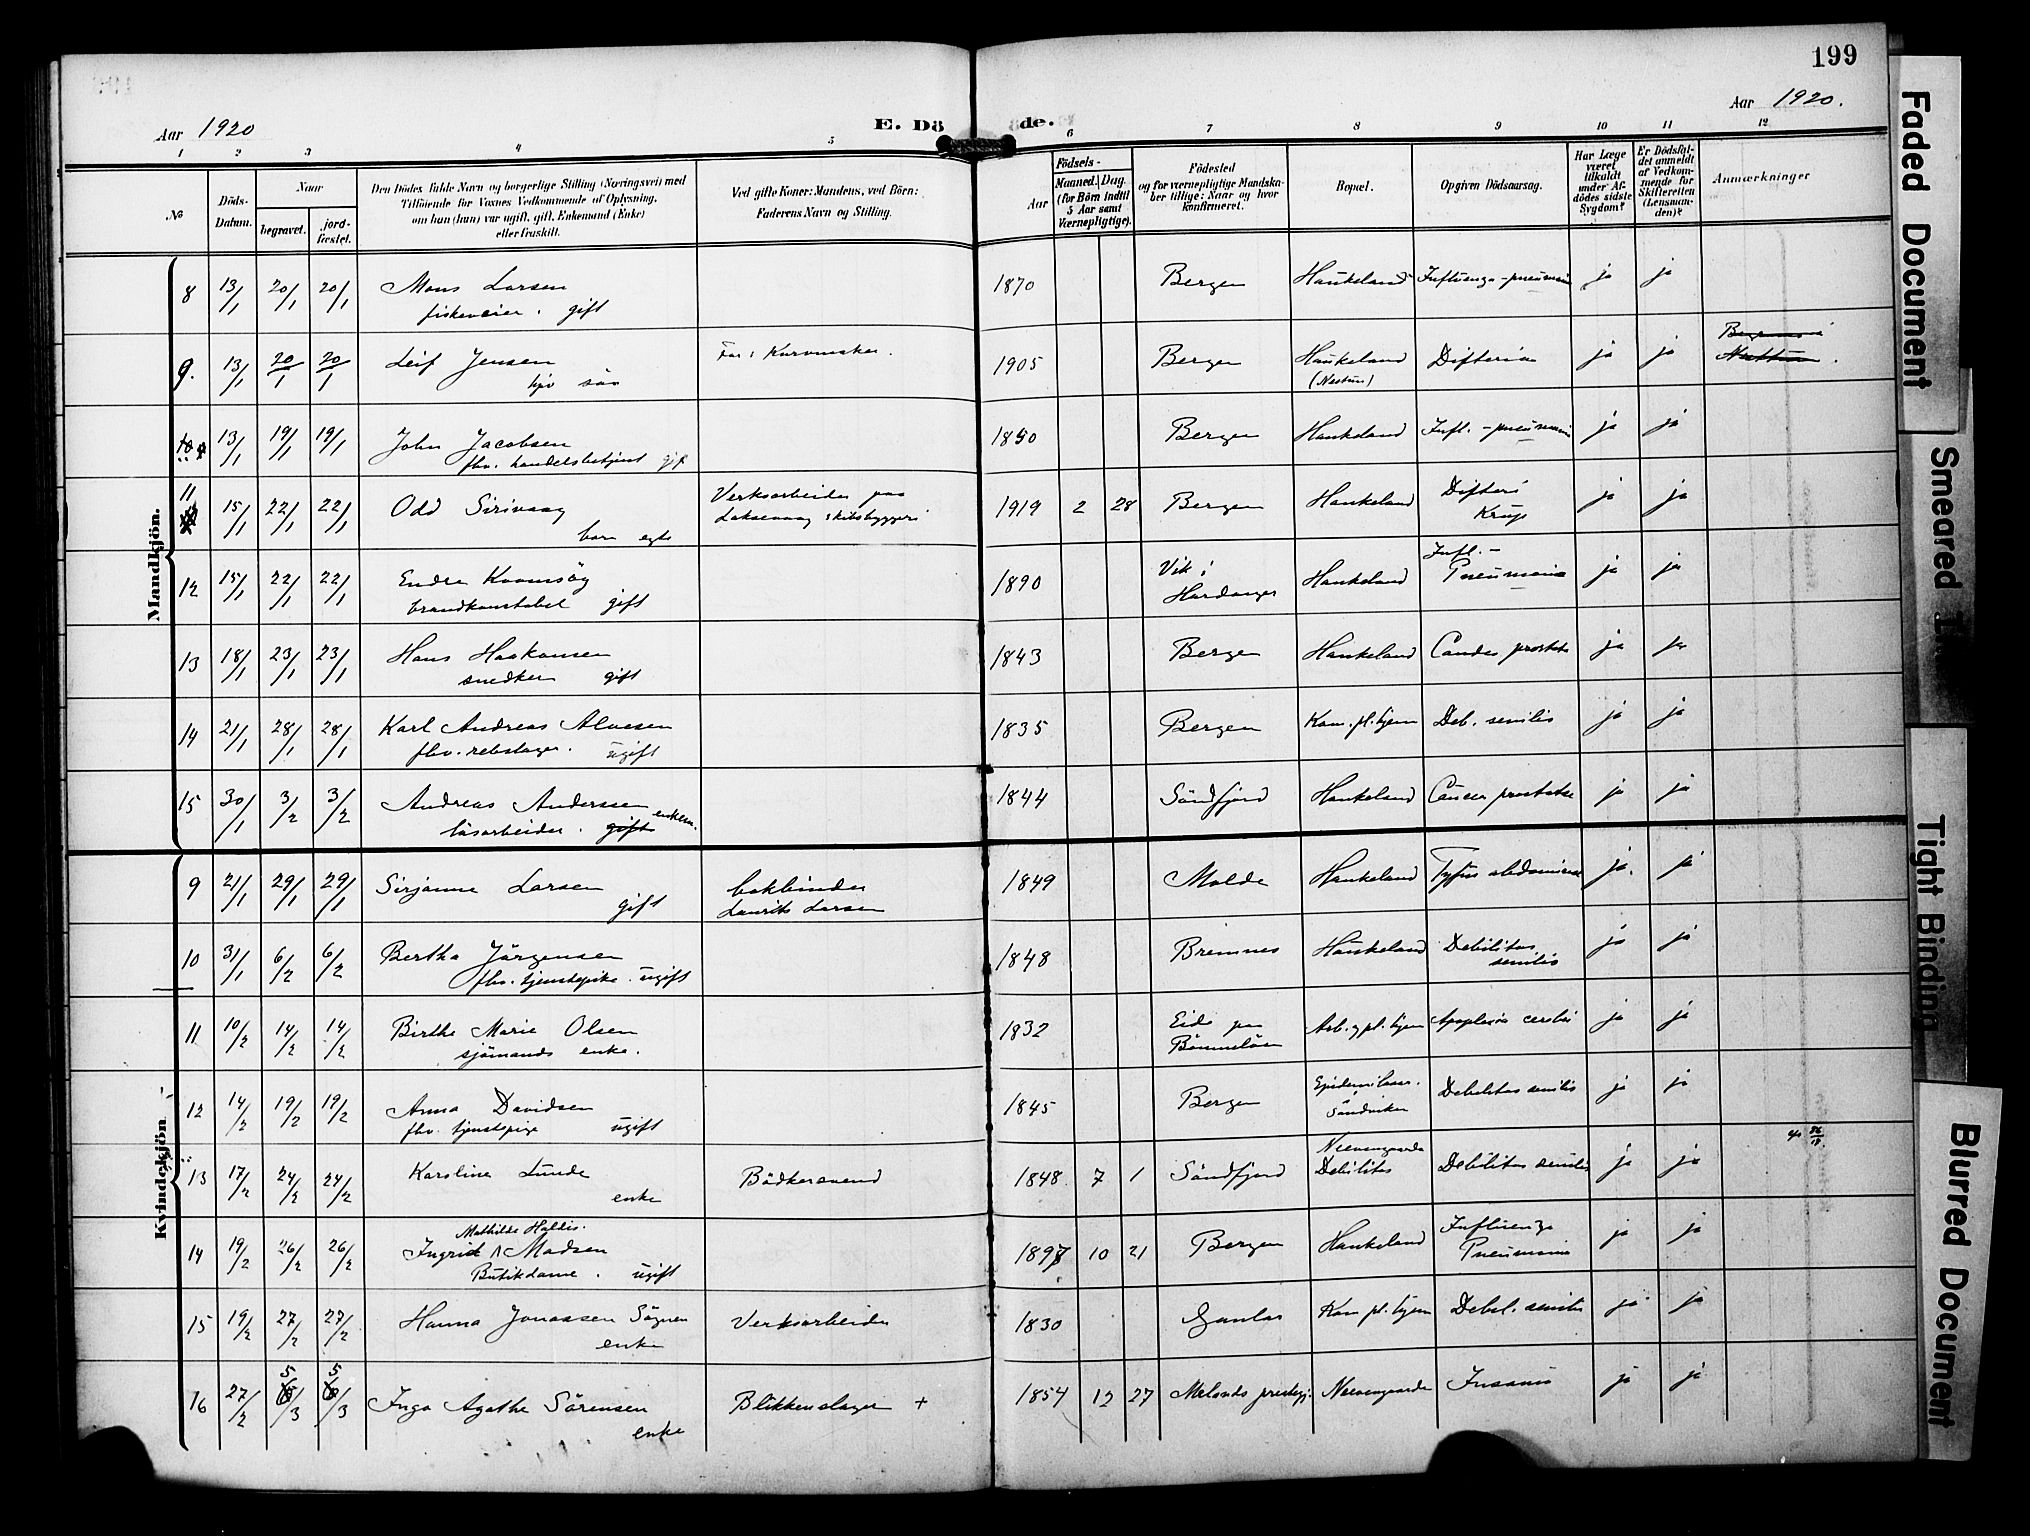 199
Aar 1920
E. Dö
de.
Aar 1920.
1 2 3 4 5 6 7 8 9 10 11 12
No
Döds-
Datum.
Naar
begravet.
jord-
fæstet.
Den Dödes fulde Navn og borgerlige Stilling (Næringsvei) med
Tilföiende for Voxnes Vedkommende af Oplysning,
om han (hun) var ugift, gift, Enkemand (Enke)
eller fraskilt.
Ved gifte Koner: Mandens, ved Börn:
Faderens Navn og Stilling.
Födsels-
Aar
Maaned. Dag.
(for Börn indtil
5 Aar samt
Værnepligtige).
Födested
og for værnepligtige Mandska-
ber tillige: Naar og hvor
konfirmeret.
Bopæl.
Opgiven Dödsaarsag.
Har Læge
været
tilkaldt
under Af-
dödes sidste
Sygdom?
Er Dödsfal-
det anmeldt
af Vedkom-
mende for
Skifteretten
(Lensman-
den)?
Anmærkninger
Mandkjön.
8 13/1 20/1 20/1 Mons Larsen 1870 Bergen Haukeland Influenza-pneumoni ja ja
fiskeveier. gift
9. 13/1 20/1 20/1 Leif Jensen 1905 Bergen Haukeland Difteria ja ja
sön (Nestun)
10 13/1 19/1 19/1 John Jacobsen Bergen Haukeland Infl.-pneumoni ja ja
fhv. handelsbetjent gift
11 15/1 22/1 22/1 Odd Sirivaag Verksarbeider paa 1919 2 28 Bergen Haukeland Difteri ja ja
barn egte Laksevaag skibsbyggeri Krup
12 15/1 22/1 22/1 Endre 1890 Vik i Haukeland Infl.- ja ja
brandkonstabel gift Hardanger Pneumonia
13 18/1 23/1 23/1 Hans Haakonsen 1843 Bergen Haukeland ja ja
snedker gift
14 21/1 28/1 28/1 Karl Andreas Alvesen 1835 Bergen Kom. pl. hjem Deb. senilis ja ja
fhv. rebslager. ugift
15 30/1 3/2 3/2 Andreas Anderssen 1844 Söndfjord Haukeland Cancer prostatae ja ja
løsarbeider. gift enkem.
Kvindekjön
9 21/1 29/1 29/1 Sirianne Larsen bokbinder 1849 Molde Haukeland Tyfus abdominae ja. ja
gift Laurits Larsen
10 31/1 6/2 6/2 Bertha Jörgensen 1848 Bremnes Haukeland Debilitas ja ja
fhv. tjenstepike. ugift senilis
11 10/2 14/2 14/2 Birthe Marie Olsen 1832 Eide paa Arb. og pl. hjem Apoplexia cerebri ja ja
sjömands enke. Bömmelöen
12 14/2 19/2 19/2 Anna Davidsen 1845 Bergen Epidemilasar. Debilitas senilis ja ja
fhv. tjenstepige ugift Sandviken
13 17/2 24/2 24/2 Karoline Lunde Bödkersvend 1848 7 1 Söndfjord Neevengaarde Debilitas senilis ja ja
enke Debilitas
14 19/2 26/2 26/2 Ingrid Mathilde Haldis Madsen 1897 10 21 Bergen Haukeland Influenza ja ja
Butikdame. ugift Pneumonia
15 19/2 27/2 27/2 Hanna Jonassen Sögnen Verksarbeider 1830 Gaular Kom pl. hjem Debil. senilis ja ja
enke
16 27/2 5/3 5/3 Inga Agathe Sörensen Blikkenslager + 1854 12 27 Melands prestegj. Neevengaarden Insania ja ja
enke
Faded Document
Smeared
Tight Binding
Blurred Document